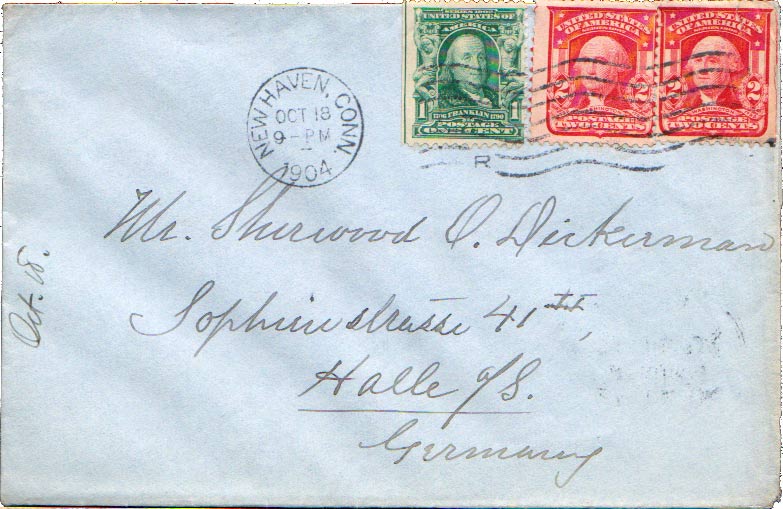 SERIES 1902
UNITED STATES OF
AMERICA
1 1706 FRANKLIN 1790 1
POSTAGE
ONE CENT
UNITED STATES
OF AMERICA
2 2
POSTAGE
TWO CENTS
UNITED STATES
OF AMERICA
2 2
POSTAGE
TWO CENTS
NEW HAVEN, CONN.
OCT 18
9 - PM
1904
R
Mr. Sherwood O. Dickerman
Sophienstrasse 41 II,
Halle a/S.
Germany
Oct. 18.